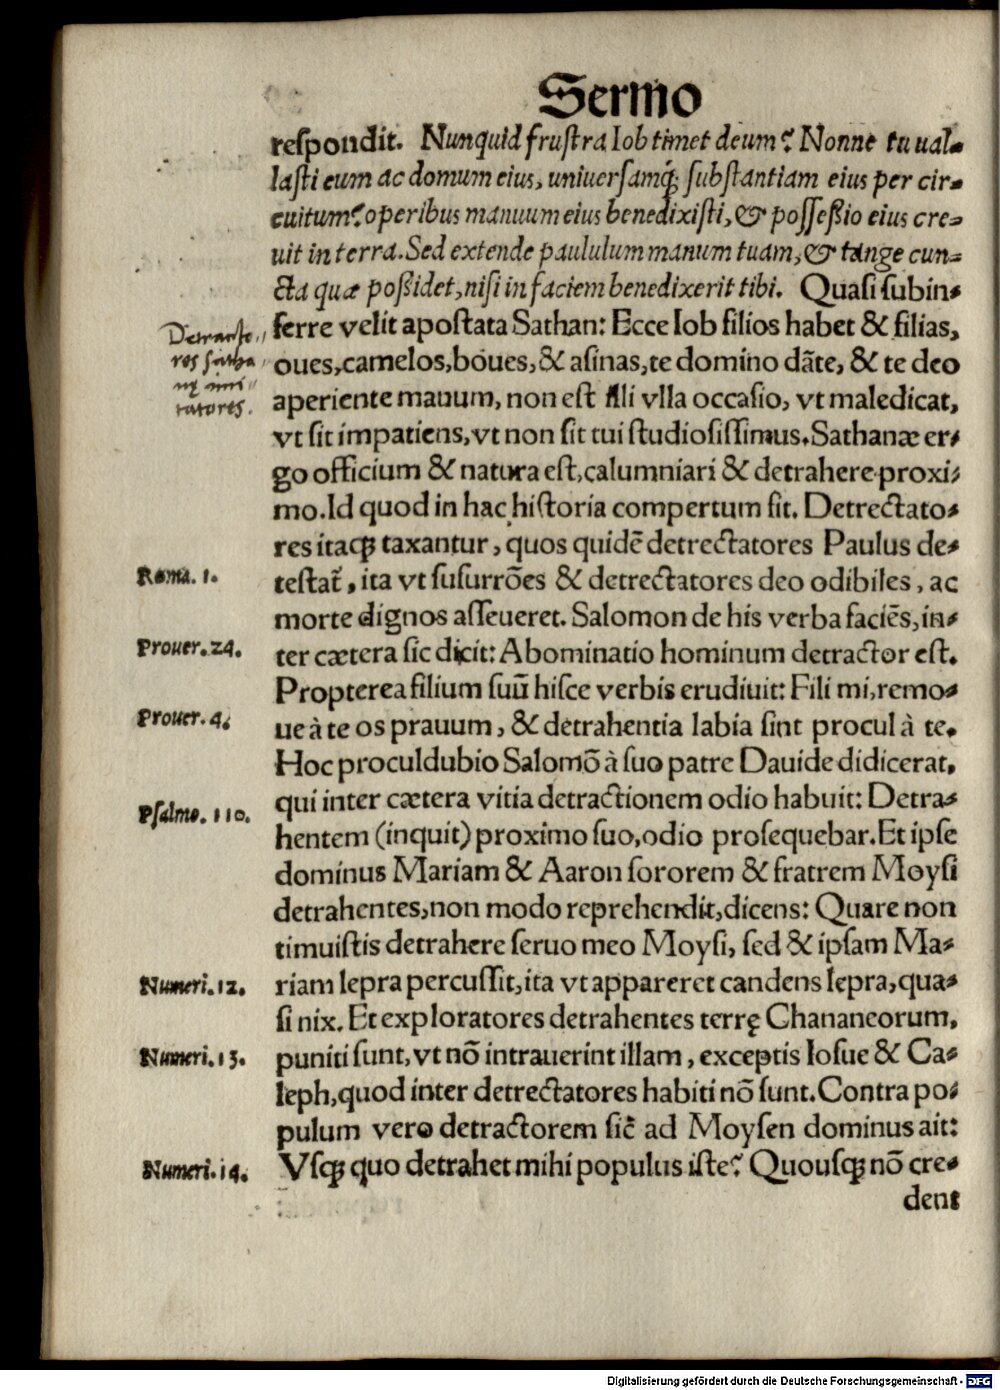 Sermo
reſpondit. Nunquid fruſtra Iob timet deum? Nonne tu ual-
laſti eum ac domum eius, uniuerſamq; ſubſtantiam eius per cir-
cuitum? operibus manuum eius benedixiſti, & poſſeßio eius cre-
uit in terra. Sed extende paululum manum tuam, & tange cun-
cta quæ poßidet, niſi in faciem benedixerit tibi. Quaſi ſubin-
ferre velit apoſtata Sathan: Ecce Iob filios habet & filias,
oues, camelos, boues, & aſinas, te domino dāte, & te deo
aperiente manum, non eſt illi vlla occaſio, vt maledicat,
vt ſit impatiens, vt non ſit tui ſtudioſiſſimus. Sathanæ er-
go officium & natura eſt, calumniari & detrahere proxi-
mo. Id quod in hac hiſtoria compertum ſit. Detrectato-
res itaq; taxantur, quos quidē detrectatores Paulus de-
teſtat̃, ita vt ſuſurrōes & detrectatores deo odibiles, ac
morte dignos aſſeueret. Salomon de his verba faciēs, in-
ter cætera ſic dicit: Abominatio hominum detractor eſt.
Propterea filium ſuū hiſce verbis erudiuit: Fili mi, remo-
ue à te os prauum, & detrahentia labia ſint procul à te.
Hoc proculdubio Salomō à ſuo patre Dauide didicerat,
qui inter cætera vitia detractionem odio habuit: Detra-
hentem (inquit) proximo ſuo, odio proſequebar. Et ipſe
dominus Mariam & Aaron ſororem & fratrem Moyſi
detrahentes, non modo reprehendit, dicens: Quare non
timuiſtis detrahere ſeruo meo Moyſi, ſed & ipſam Ma-
riam lepra percuſſit, ita vt appareret candens lepra, qua-
ſi nix. Et exploratores detrahentes terrę Chananeorum,
puniti ſunt, vt nō intrauerint illam, exceptis Ioſue & Ca-
leph, quod inter detrectatores habiti nō ſunt. Contra po-
pulum vero detractorem ſic ad Moyſen dominus ait:
Vſq; quo detrahet mihi populus iſte? Quouſq; nō cre-
dent
Detracto-
res satha-
nę imi-
tatores.
Roma. 1.
Prouer. 24.
Prouer. 4.
Pſalmo. 110.
Numeri. 12.
Numeri. 13.
Numeri. 14.
Digitalisierung gefördert durch die Deutsche Forschungsgemeinschaft - DFG